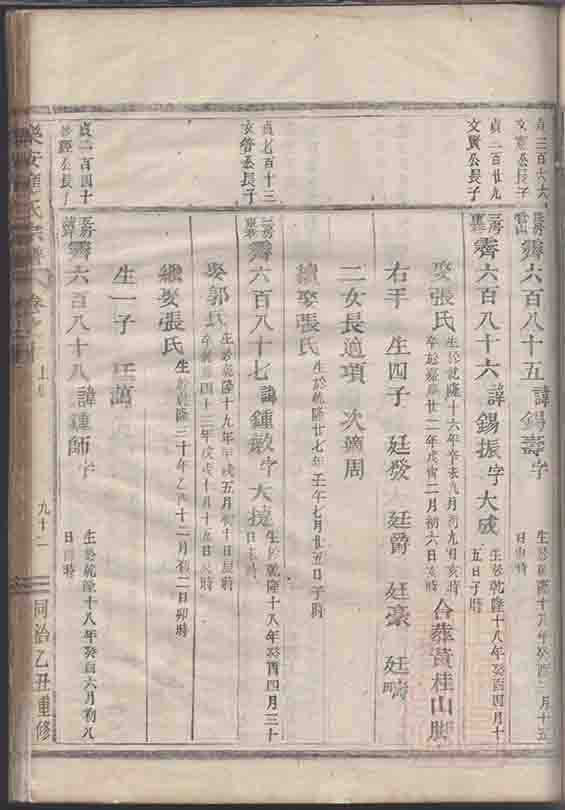 貞二百六六
文 公長子
長房
霽六百八十五 諱錫壽字
生於乾隆十八年癸酉 月十五
日 時
貞二百廿九
文賢公長子
二房
霽六百八十六 諱錫振字大成
生於乾隆十八年癸酉四月十
五日子時
娶張氏
生於乾隆十六年辛未九月初九日亥時
卒於嘉慶廿二年 二月初六日亥時
合葬黃桂山脚
右手 生四子 廷發 廷爵 廷豪 廷疇
二女長適項 次適周
續娶張氏 生於乾隆廿七年壬午七月廿五日子時
貞七百十三
文 公長子
二房
霽六百八十七 諱鍾敏字大
生於乾隆十八年癸酉四月三十
日 時
娶郭氏
生於乾隆十九年甲戌五月初十日 時
卒於乾隆四十三年戊戌十月十五日 時
繼娶張氏 生於乾隆三十年乙酉十二月初二日卯時
生一子 廷萬
貞二百四十
公長子
二房
霽六百八十八 諱鍾師字
生於乾隆十八年癸酉六月初八
日 時
樂安 氏宗譜 卷 上
九十二
同治乙丑重修